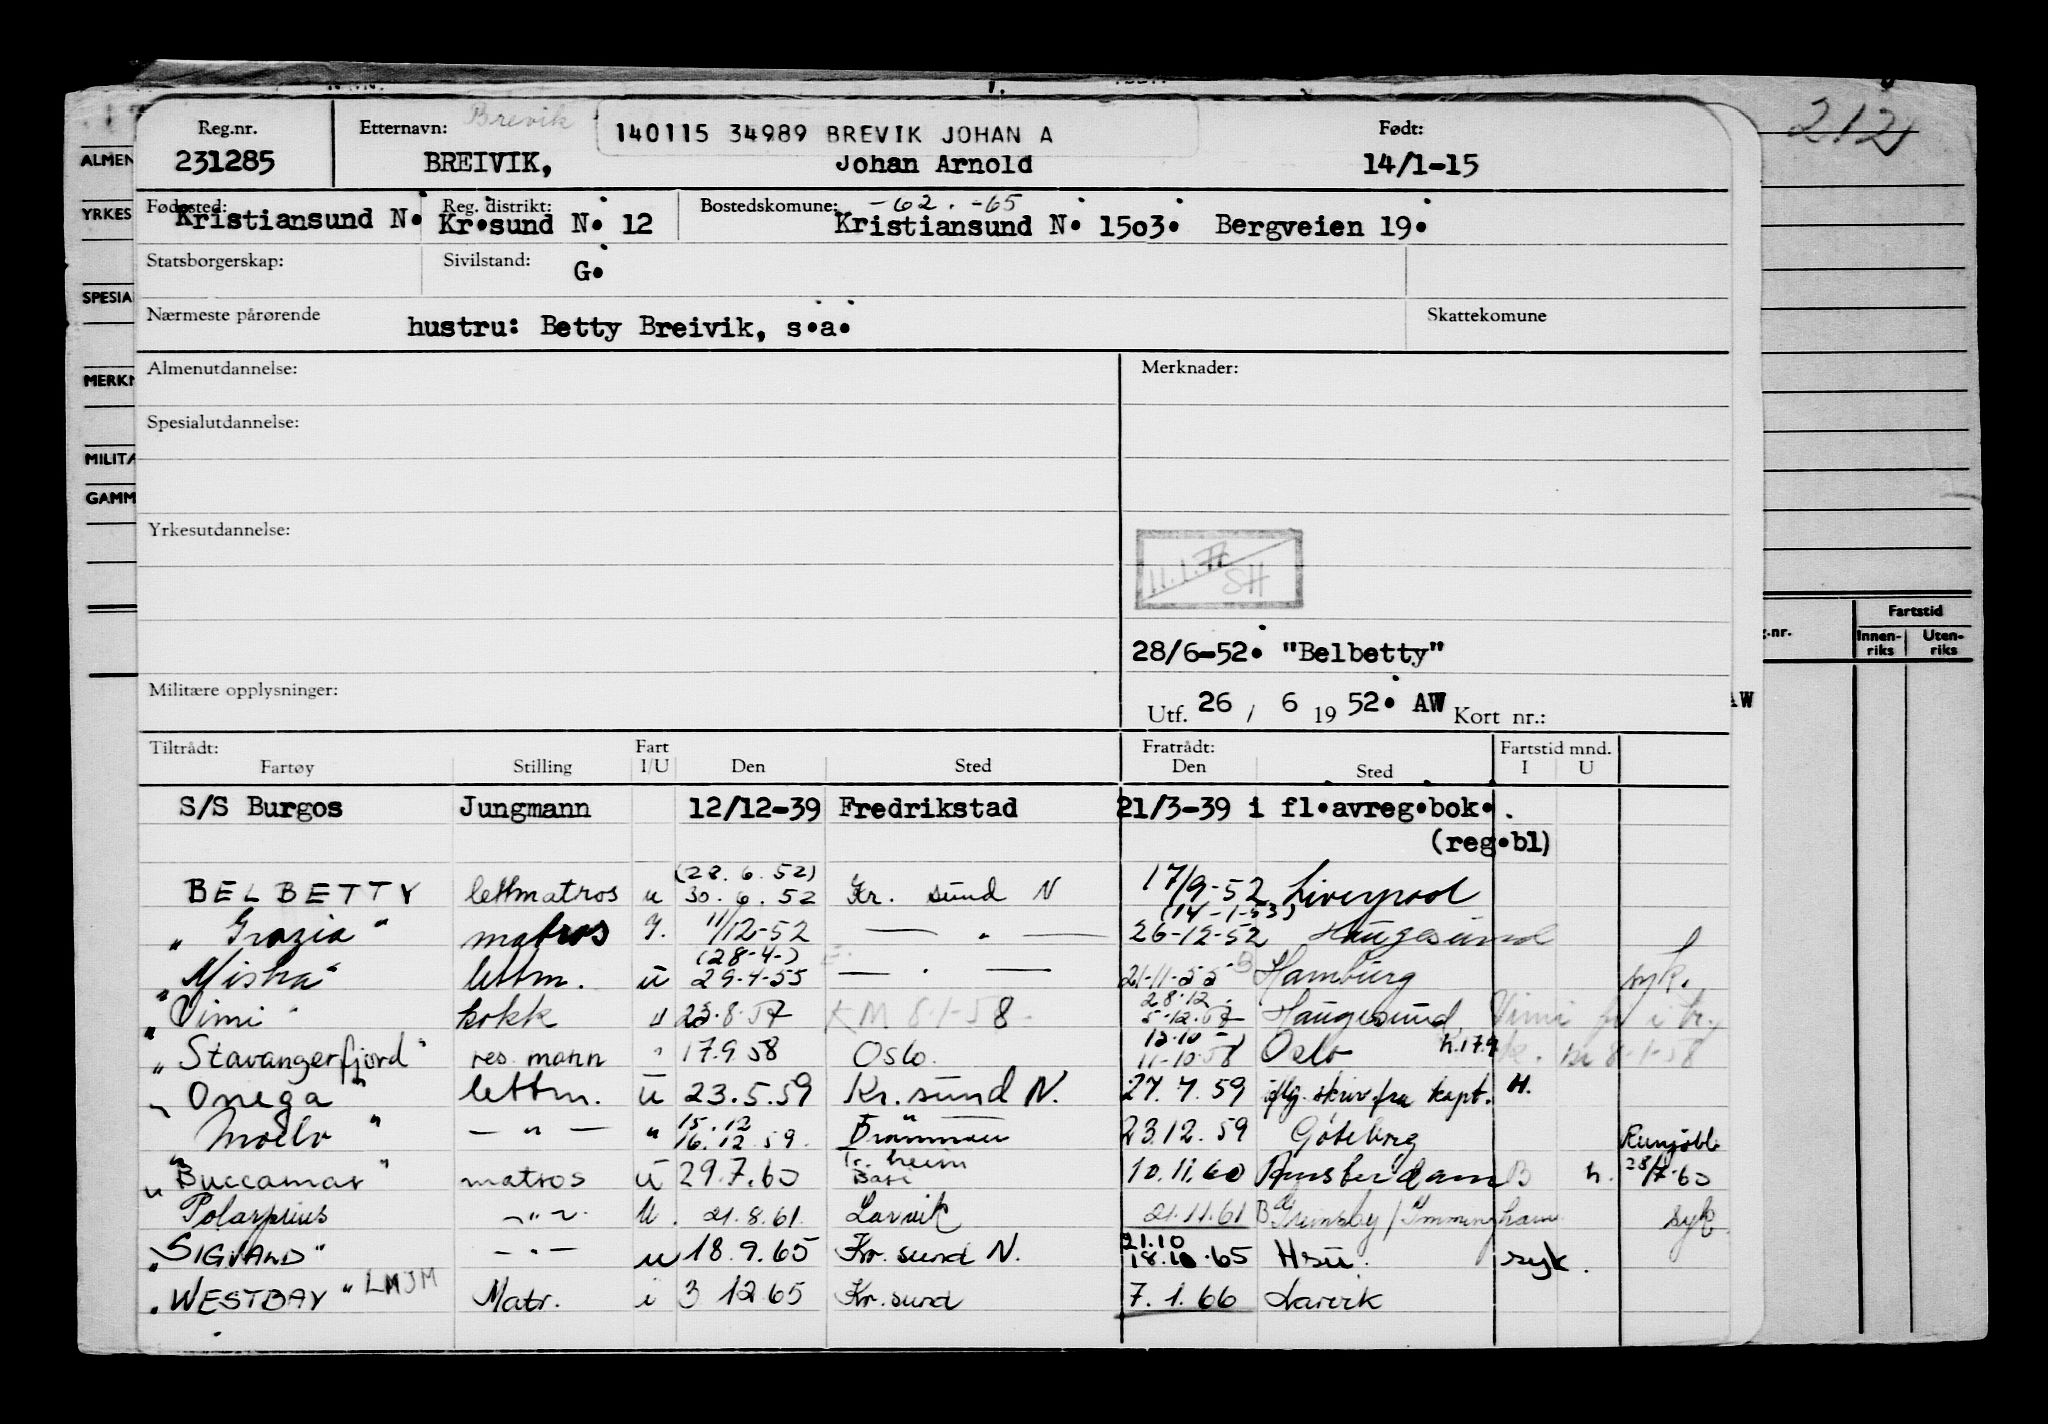 212
Brevik
140115 34989 BREVIK JOHAN A
Reg.nr. Etternavn: Født:
231285 BREIVIK, Johan Arnold 14/1-15
Fødested: Reg. distrikt: Bostedskomune: -62. -65
Kristiansund N. Kr.sund N. 12 Kristiansund N. 1503. Bergveien 19.
Statsborgerskap: Sivilstand: G.
Nærmeste pårørende hustru: Betty Breivik, s.a. Skattekomune
Almenutdannelse: Merknader:
Spesialutdannelse:
Yrkesutdannelse:
SH
28/6-52. "Belbetty"
Militære opplysninger: Utf. 26 / 6 19 52. AW Kort nr.:
AW
ALMEN
YRKES
SPESIA
MERKN
MILITÆ
GAMM
Fartstid
Innen-riks Uten-riks
Tiltrådt: Fart Fratrådt: Fartstid mnd.
Fartøy Stilling I/U Den Sted Den Sted I U
S/S Burgos Jungmann 12/12-39 Fredrikstad 21/3-39 i fl.avreg.bok.
(reg.bl)
(28.6.52)
BELBETTY lettmatros u 30.6.52 Kr. sund N 17/9-52 Liverpool
(14-1-53)
" Grazia " matros 11/12-52 — " — 26-12-52 Haugesund
(28-4-)
" lettm. u 29-4-55 — " — 21-11-55 Hamburg syk.
28.12.
" Vimi " kokk " 23.8.57 KM 8-1-58 5.12.57 Haugesund
12-10
" Stavangerfjord " res. mann " 17.9.58 Oslo. 11-10-58 Oslo h.17.9
" Onega " lettm. u 23.5.59 Kr. sund N. 27.7.59 iflg. skriv fra kapt. H.
15.12
" Moelv " — " — " 16.12.59. 23.12.59 Göteborg
Tr.heim
" Buccamar " matros u 29.7.60 10.11.60 Amsterdam B h. 28/7-60
Polarprins — " — u. 21.8.61 Larvik 21.11.61 B Grimsby / Immingham syk
21.10
" SIGVALD " — " — u 18.9.65 Kr. sund N. 18.10.65 Hsu. syk.
" WESTBAY " LMJM Matr. i 3 12 65 Kr. sund 7.1.66 Larvik